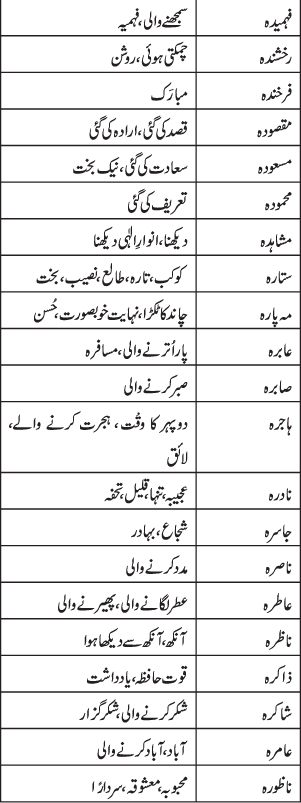 فہمیدہ سمجھنے والی، فہمیہ
رخشندہ چمکتی ہوئی، روشن
فرخندہ مبارَک
مقصودہ قصد کی گئی، ارادہ کی گئی
مسعودہ سعادت کی گئی، نیک بخت
محمودہ تعریف کی گئی
مشاہدہ دیکھنا، انوارِ الٰہی دیکھنا
ستارہ کوکب، تارہ، طالع، نصیب، بخت
مہ پارہ چاند کا ٹکڑا، نہایت خوبصورت، حُسن
عابرہ پار اُترنے والی، مسافرہ
صابرہ صبر کرنے والی
ہاجرہ دوپہر کا وقت، ہجرت کرنے والے،
لائق
نادرہ عجیبہ، تنہا، قلیل، تحفہ
جاسرہ شجاع، بہادر
ناصرہ مدد کرنے والی
عاطرہ عطر لگانے والی، پھیرنے والی
ناظرہ آنکھ، آنکھ سے دیکھا ہوا
ذاکرہ قوت حافظہ، یادداشت
شاکرہ شکر کرنے والی، شکر گزار
عامرہ آباد، آباد کرنے والی
ناظورہ محبوبہ، معشوقہ، سردارْا